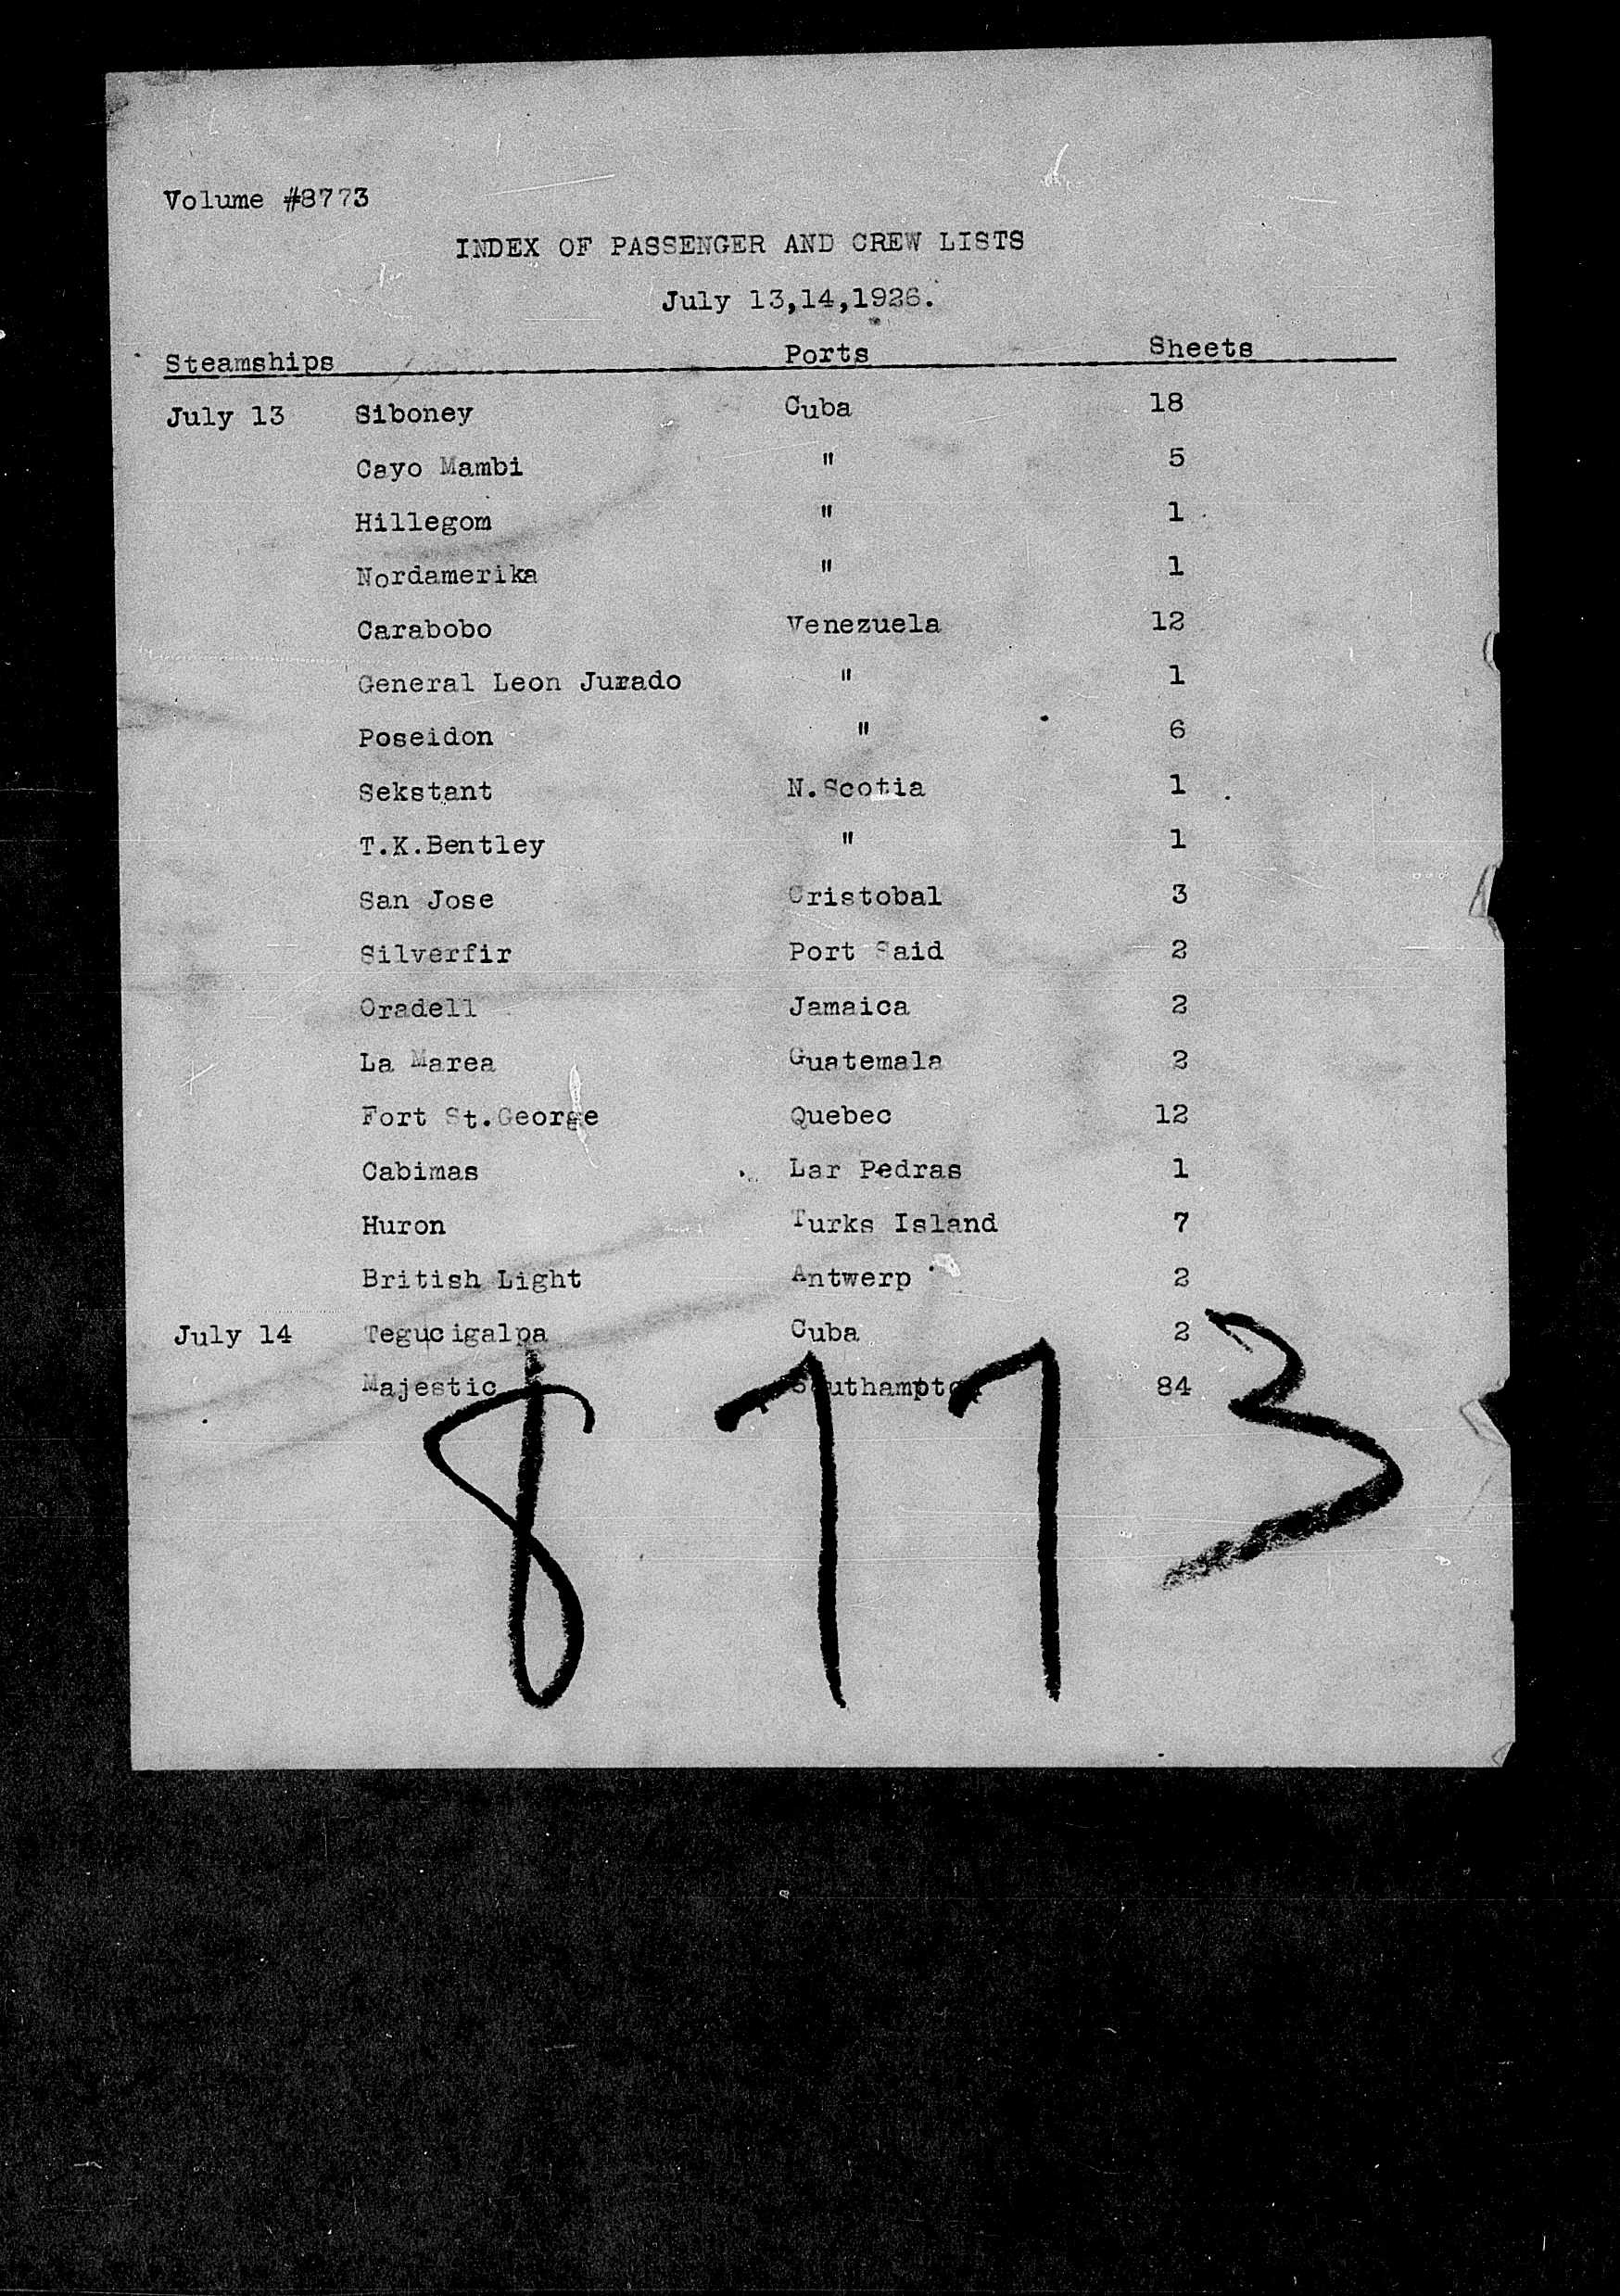 Volume #8773
INDEX OF PASSENGER AND CREW LISTS
July 13,14,1926.
Steamships Ports Sheets
July 13 Siboney Cuba 18
Cayo Mambi " 5
Hillegom " 1
Nordamerika " 1
Carabobo Venezuela 12
General Leon Jurado " 1
Poseidon " 6
Sekstant N.Scotia 1
T.K.Bentley " 1
San Jose Cristobal 3
Silverfir Port Said 2
Oradell Jamaica 2
La Marea Guatemala 2
Fort St.George Quebec 12
Cabimas Lar Pedras 1
Huron Turks Island 7
British Light Antwerp 2
July 14 Tegucigalpa Cuba 2
Majestic Southampton 84
8773